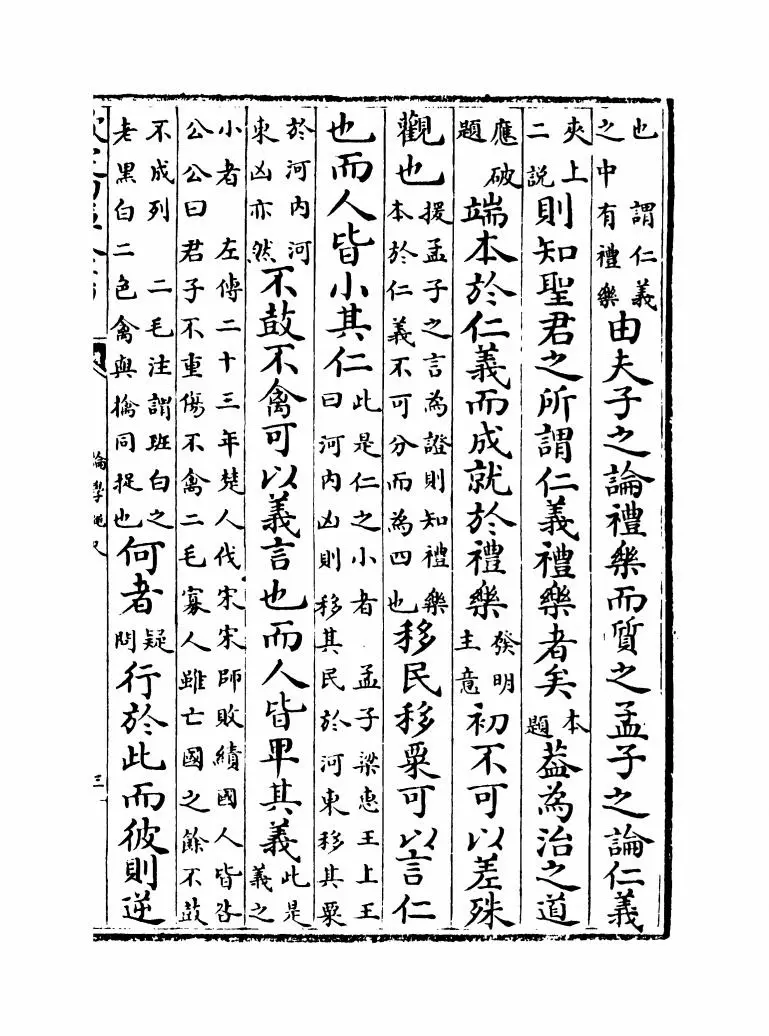 也　謂仁義之中有禮樂由夫子之論禮樂而質之孟子之論仁義
夾上二說則知聖君之所謂仁義禮樂者矣本題蓋為治之道
應破題端本於仁義而成就於禮樂發明主意初不可以差殊
觀也援孟子之言為證則知禮樂本於仁義不可分而為四也移民移粟可以言仁
也而人皆小其仁此是仁之小者　孟子梁惠王上王曰河內凶則移其民於河東移其粟
於河內河東凶亦然不鼓不禽可以義言也而人皆卑其義此是義之
小者　左傳二十三年楚人伐宋宋師敗績國人皆咎公公曰君子不重傷不禽二毛寡人雖亡國之餘不鼓
不成列　二毛注謂班白之老黑白二色禽與擒同捉也何者疑問行於此而彼則逆
三